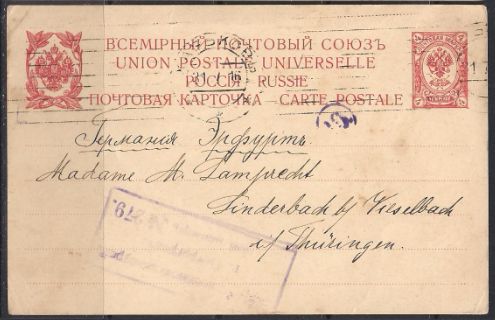 ВСЕМІРНЫЙ ПОЧТОВЫЙ СОЮЗЪ
UNION POSTALE UNIVERSELLE
РОССІЯ RUSSIE
ПОЧТОВАЯ КАРТОЧКА — CARTE POSTALE
Германия Эрфуртъ
Madame M. Lamprecht
Linderbach b/ Vieselbach
i/ Thüringen.
279.